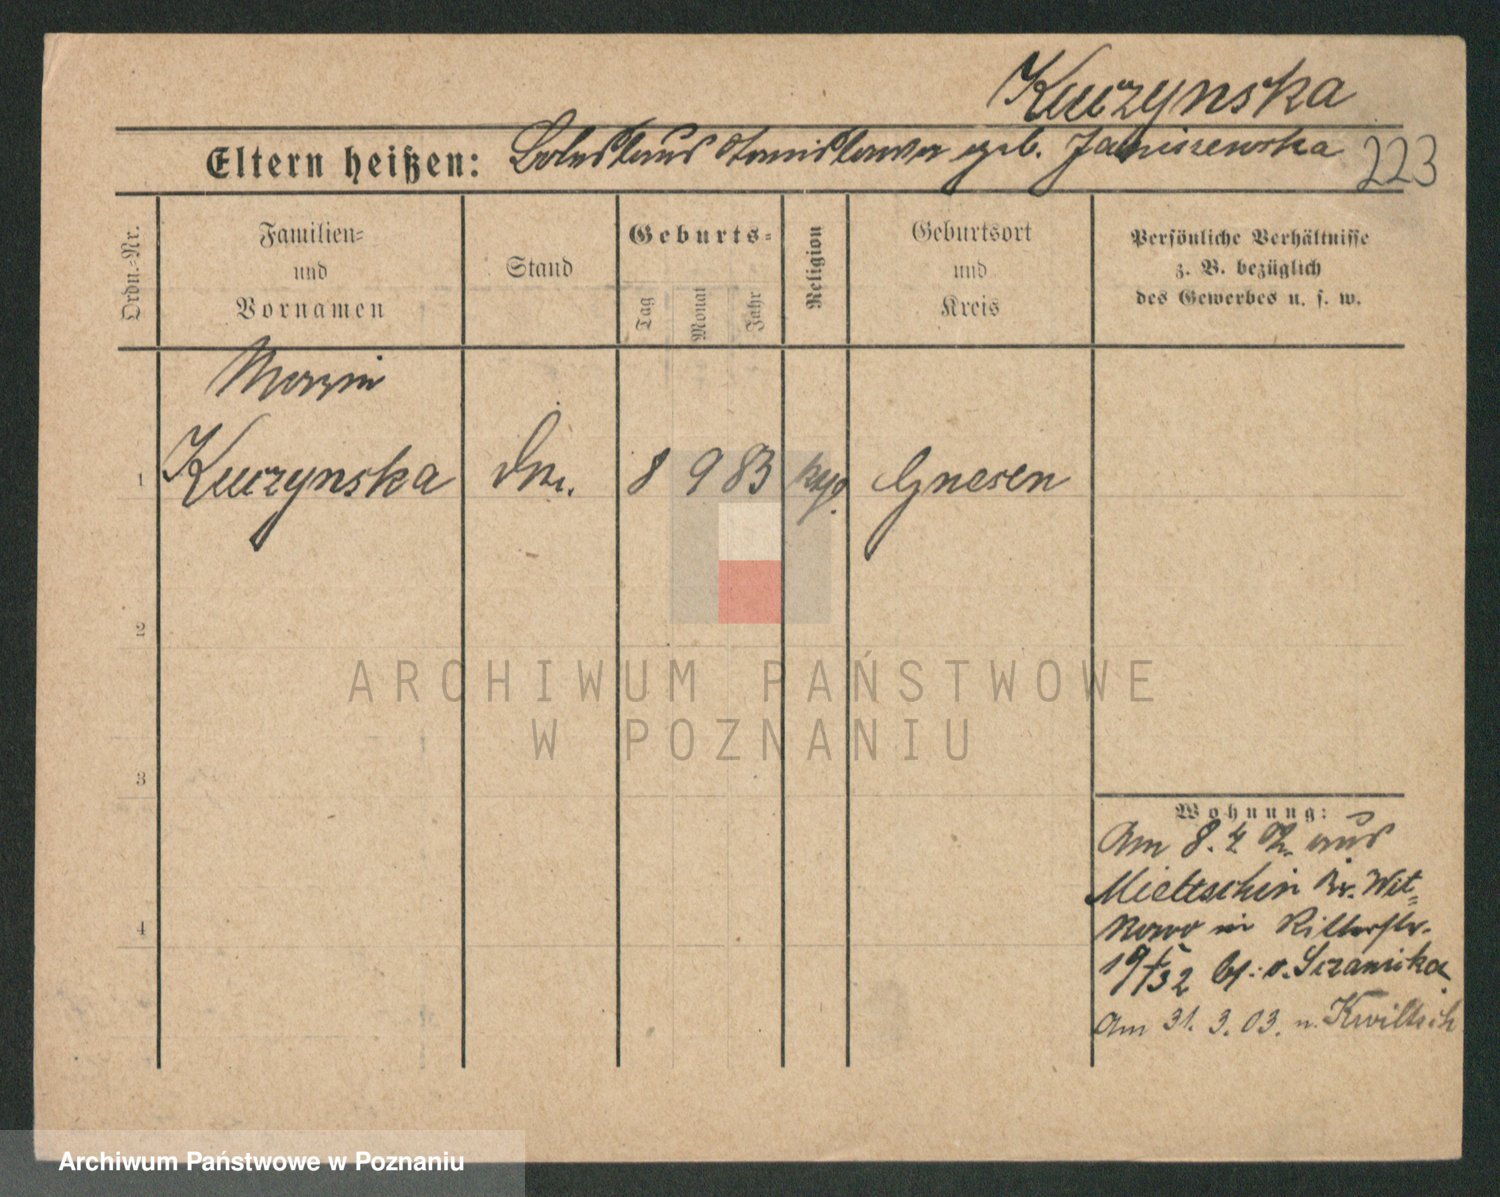 Kuczynska
Eltern heißen: Boleslaus Stanislawa geb. Janiszewska 223
Ordn.-Nr.
Familien-
und
Vornamen
Stand
Geburts-
Tag
Monat
Jahr
Religion
Geburtsort
und
Kreis
Persönliche Verhältnisse
z. B. bezüglich
des Gewerbes u. s. w.
1
Kuczynska
8 9 83
Gnesen
2
3
4
Wohnung:
Am 8. 4 02. aus
Mieltschin Kr. Wit-
kowo in Ritterstr.
Am 31. 3. 03. n. Kwiltsch
ARCHIWUM PAŃSTWOWE
W POZNANIU
Archiwum Państwowe w Poznaniu